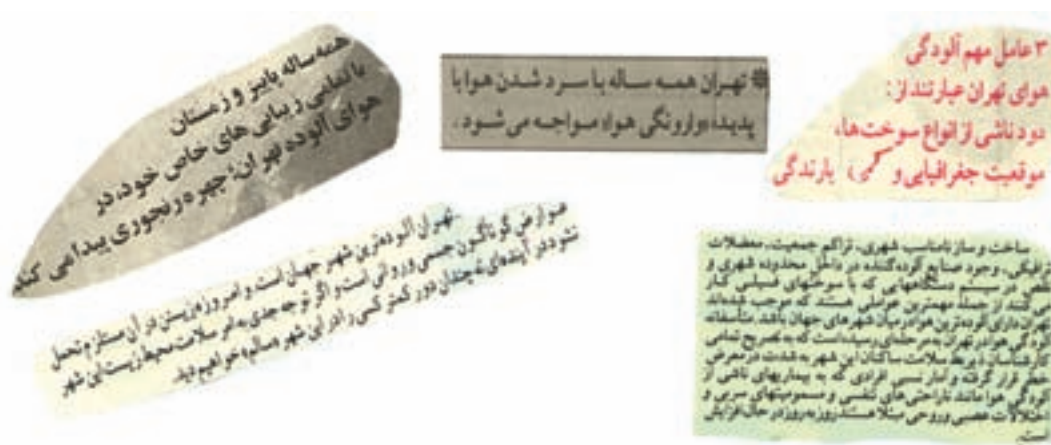 ۳ عامل مهم آلودگی
هوای تهران عبارتند از:
دود ناشی از انواع سوخت‌ها،
موقعیت جغرافیایی و کمی بارندگی
* تهران همه ساله با سرد شدن هوا با
پدیده «وارونگی هوا» مواجه می‌شود.
همه ساله پاییز و زمستان
با تمامی زیبایی های خاص خود، در
هوای آلوده تهران؛ چهره رنجوری پیدا می کند
تهران آلوده‌ترین شهر جهان است و امروزه زیستن در آن مستلزم تحمل
عوارض گوناگون جسمی و روانی است و اگر توجه جدی به امر سلامت محیط زیست این شهر
نشود در آینده‌ای نه چندان دور کمتر کسی را در این شهر «سالم» خواهیم دید.
ساخت و ساز نامناسب شهری، تراکم جمعیت، معضلات
ترافیکی، وجود صنایع آلوده کننده در داخل محدوده شهری و
نقص در سیستم دستگاههایی که با سوختهای فسیلی کار
می‌کنند از جمله مهمترین عواملی هستند که موجب شده‌اند
تهران دارای آلوده‌ترین هوا در میان شهرهای جهان باشد. متأسفانه
آلودگی هوا در تهران به مرحله‌ای رسیده است که به تصریح تمامی
کارشناسان ذیربط سلامت ساکنان این شهر به شدت در معرض
خطر قرار گرفته و آمار نسبی افرادی که به بیماریهای ناشی از
آلودگی هوا مانند ناراحتی‌های تنفسی و مسمومیتهای سربی و
اختلالات عصبی و روحی مبتلا هستند روز به روز در حال افزایش
است.